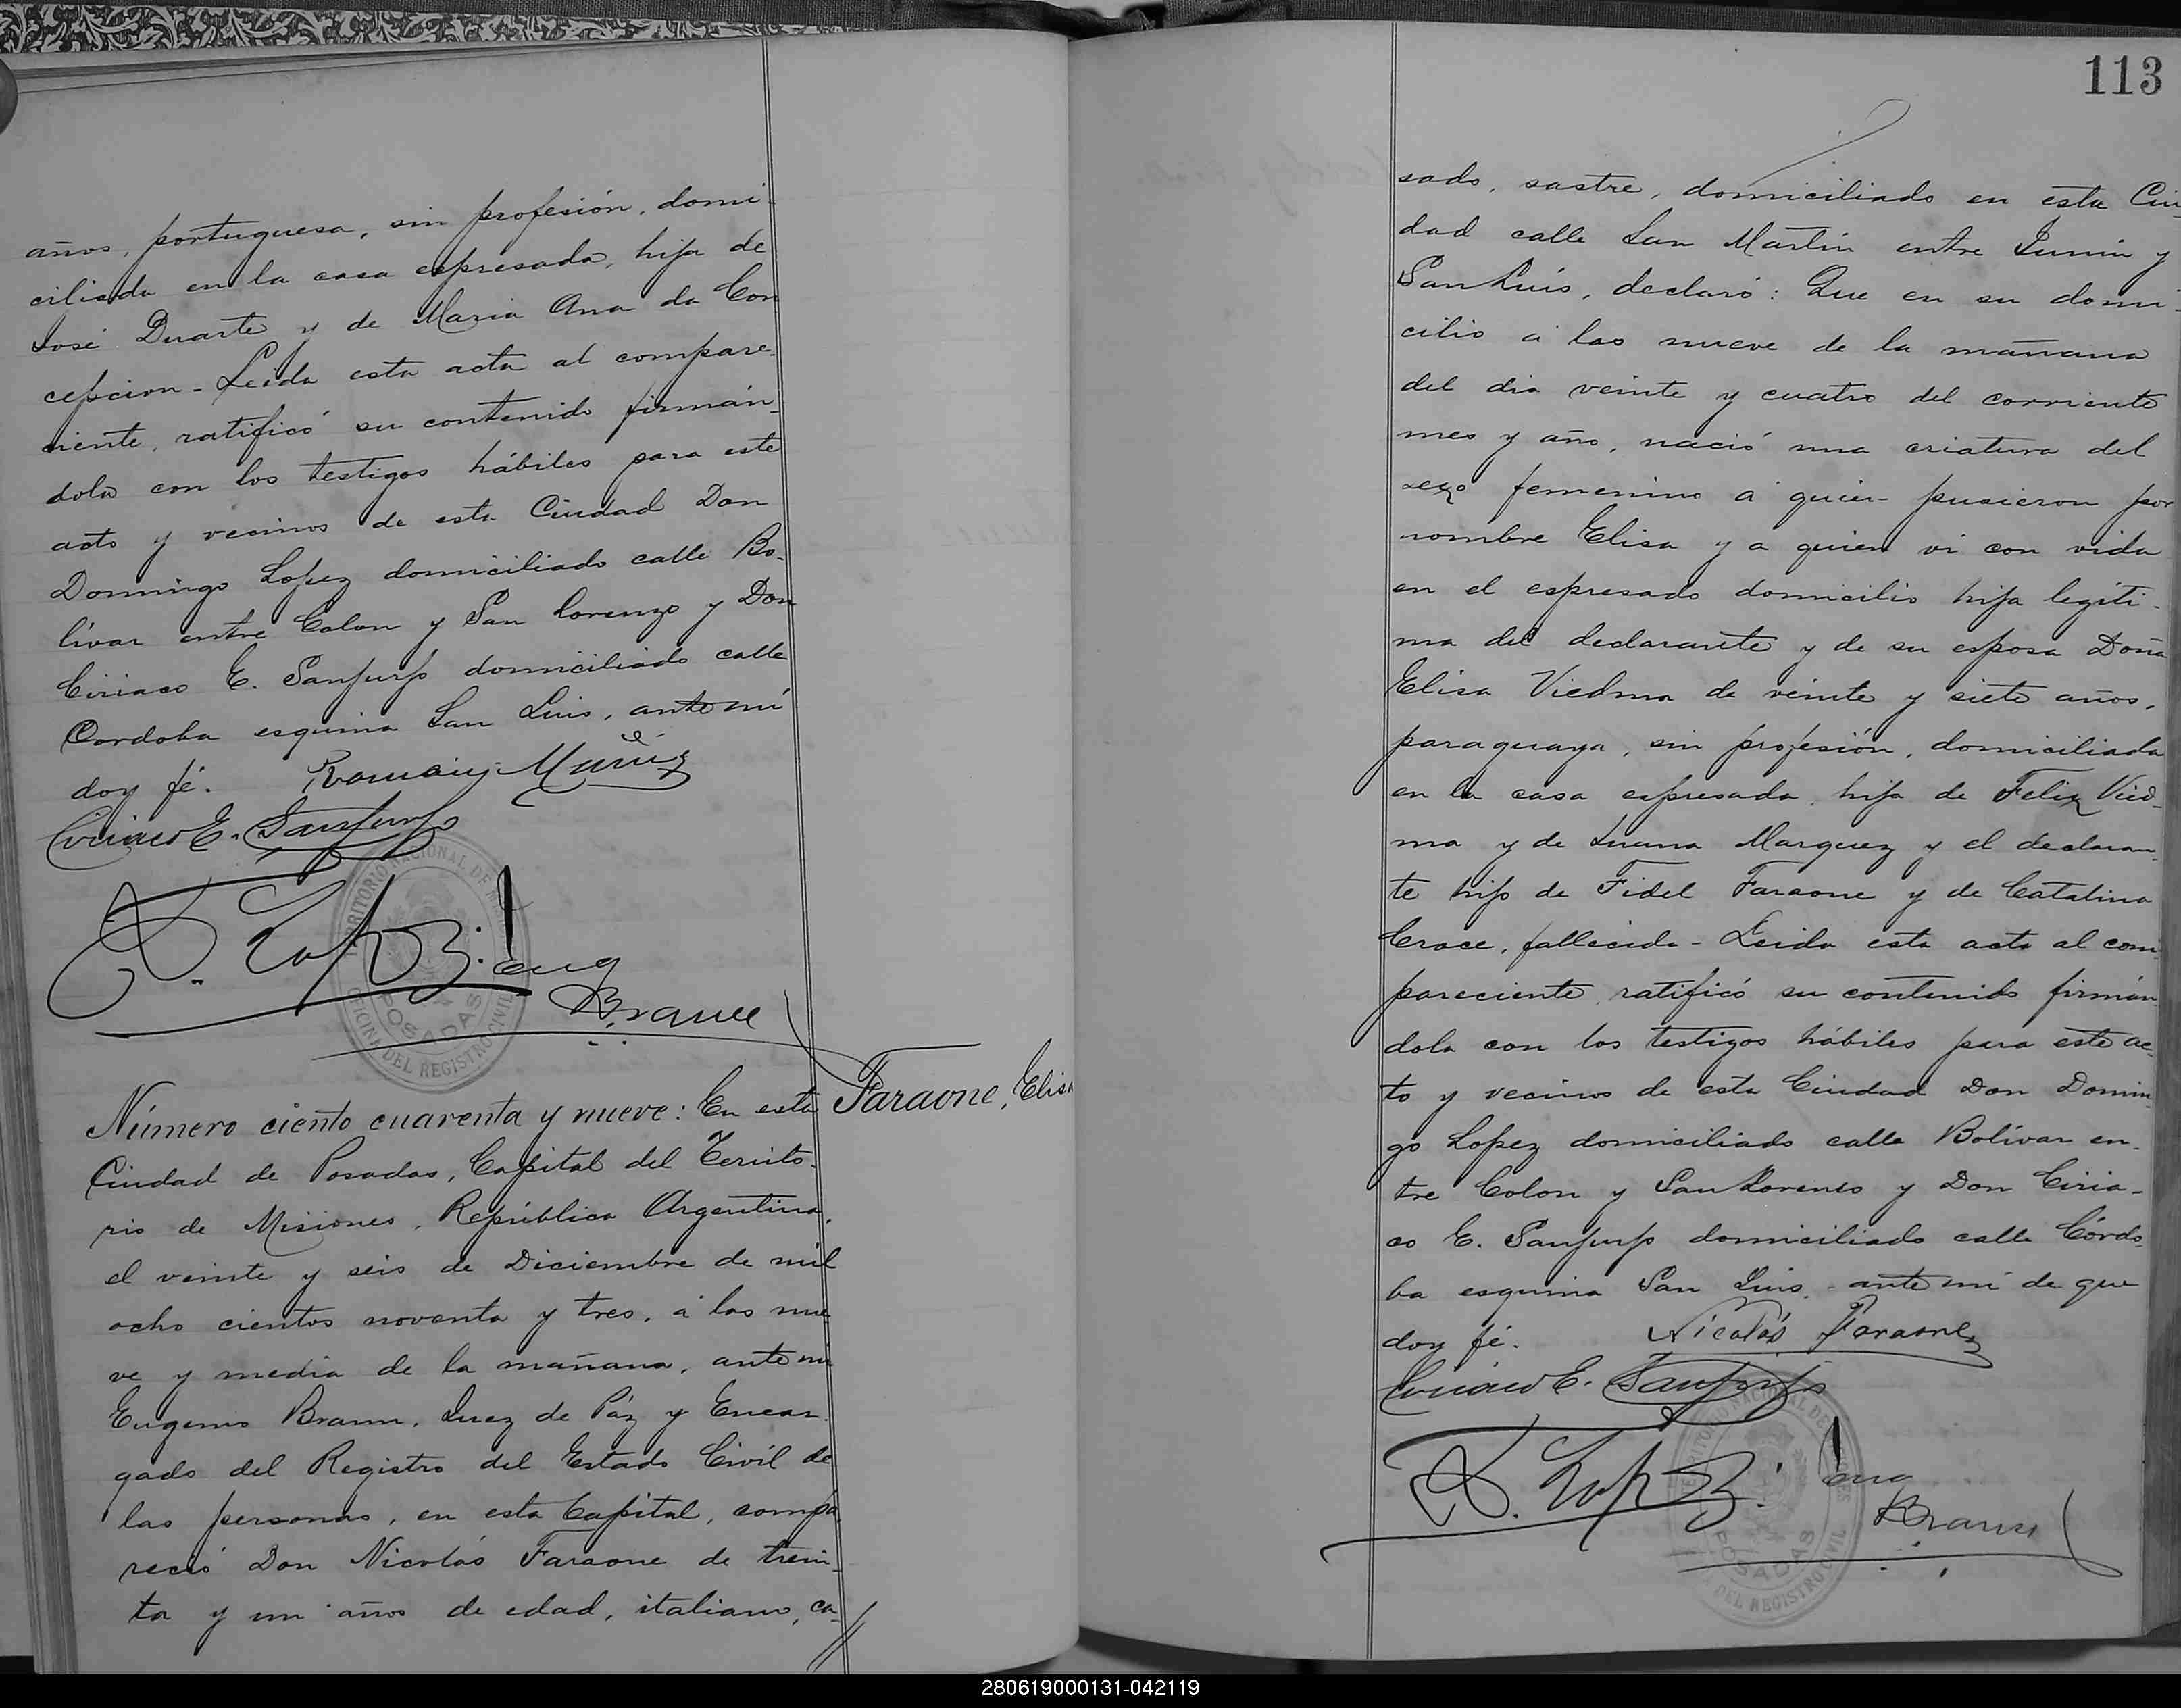 años, portuguesa, sin profesión, domi-
ciliada en la casa espresada, hija de
José Duarte y de Maria Ana da Con
cepcion - Leida esta acta al compare-
ciente, ratificó su contenido firmán-
dola con los testigos hábiles para este
acto y vecinos de esta Ciudad Don
Domingo Lopez domiciliado calle Bo-
lívar entre Colon y San Lorenzo y Don
Ciriaco E. Sanjurjo domiciliado calle
Cordoba esquina San Luis, ante mi
doy fé. Muñiz
Ciriaco E. Sanjurjo
D. Lopez. Eug
Braun
TERRITORIO NACIONAL DE MISIONES
POSADAS
OFICINA DEL REGISTRO CIVIL
Número ciento cuarenta y nueve: En esta
Faraone, Elisa
Ciudad de Posadas, Capital del Territo-
rio de Misiones, República Argentina,
el veinte y seis de Diciembre de mil
ocho cientos noventa y tres, á las nue
ve y media de la mañana, ante mi
Eugenio Braun, Juez de Páz y Encar-
gado del Registro del Estado Civil de
las personas, en esta Capital, compa
reció Don Nicolás Faraone de trein-
ta y un años de edad, italiano, ca-
113
sado, sastre, domiciliado en esta Ciu-
dad calle San Martin entre Junin y
San Luis, declaró: Que en su domi-
cilio á las nueve de la mañana
del dia veinte y cuatro del corriente
mes y año, nació una criatura del
sexo femenino á quien pusieron por
nombre Elisa y a quien vi con vida
en el espresado domicilio hija legíti-
ma del declarante y de su esposa Doña
Elisa Viedma de veinte y siete años,
paraguaya, sin profesión, domiciliada
en la casa espresada, hija de Felix Vied-
ma y de Juana Marquez y el declaran-
te hijo de Fidel Faraone y de Catalina
Croce, fallecida - Leida esta acta al com
pareciente, ratificó su contenido firmán
dola con los testigos hábiles para este ac-
to y vecinos de esta Ciudad Don Domin-
go Lopez domiciliado calle Bolívar en-
tre Colon y San Lorenzo y Don Ciria-
co E. Sanjurjo domiciliado calle Córdo-
ba esquina San Luis, ante mi de que
doy fé. Nicolás Faraone
Ciriaco E. Sanjurjo
D. Lopez. Eug
Braun
TERRITORIO NACIONAL DE MISIONES
POSADAS
OFICINA DEL REGISTRO CIVIL
280619000131-042119